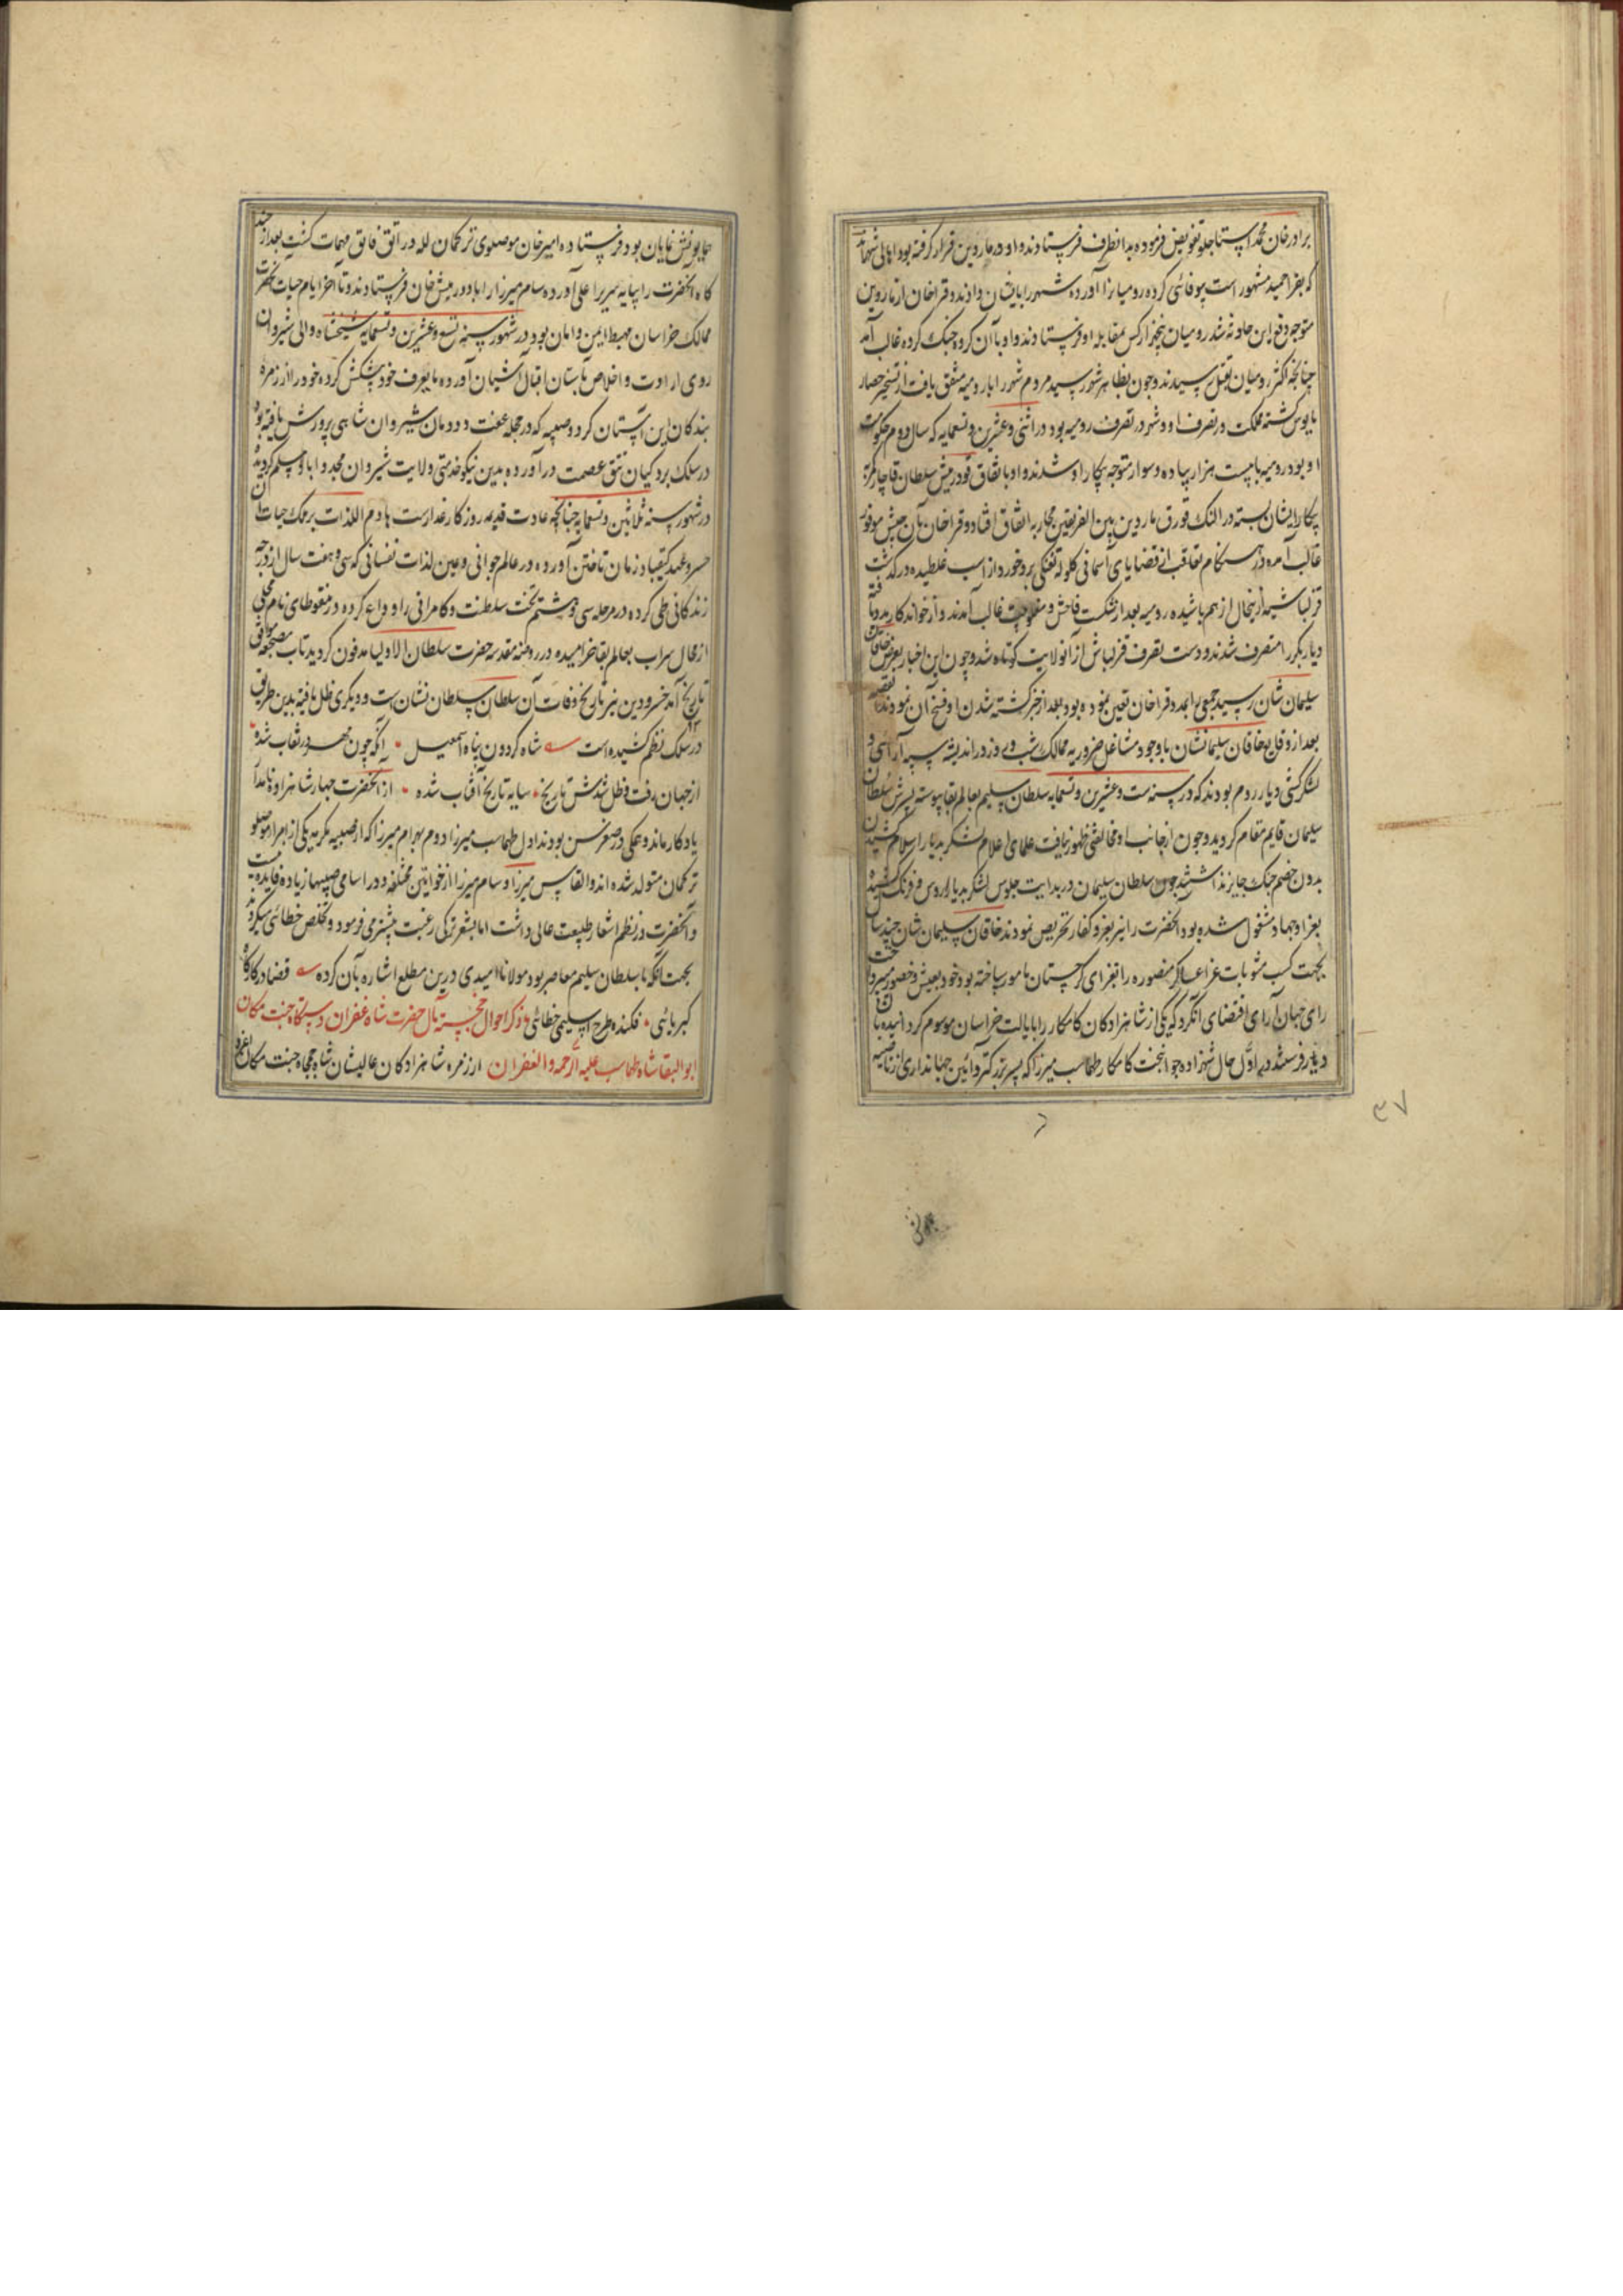 برادر خان محمد استاجلو تفویض فرموده بدانطرف فرستادند و او در ماردین قرار گرفته بود اهالی شهر آمد
که بقرا حمید مشهور است بیوفائی کرده رومیانرا آورده شهر را بایشان دادند و قراخان از ماردین
متوجه دفع این حادثه شد رومیان پنجهزار کس بمقابله او فرستادند و او با آن گروه جنگ کرده غالب آمد
چنانچه اکثر رومیان بقتل رسیدند و چون بظاهر شهر رسید مردم شهر را با رومیه متفق یافت از تسخیر حصار
مایوس گشته مملکت در تصرف او و شهر در تصرف رومیه بود در اثنی و عشرین و تسعمایه که سال دوم حکومت
او بود رومیه با بیست هزار پیاده و سوار متوجه پیکار او شدند و او باتفاق دورمیش سلطان قاجار کمر
پیکار ایشان بسته در النک قورق ماردین بین الفریقین محاربه اتفاق افتاد و قراخان بآن جیش موفور
غالب آمده در هنگام تعاقب از قضایای آسمانی کلوله تفنکی برو خورد از اسب غلطیده درگذشت
قزلباشیه ازینحال از هم پاشیده رومیه بعد از شکست فاحش و مغلوبیت غالب آمدند و از خواندکار مدد یافته
دیاربکر را متصرف شدند و دست تصرف قزلباش از آنولایت کوتاه شد و چون این اخبار بعرض خاقان
سلیمان شان رسید جمعی را بمدد قراخان تعین نموده بود بعد از خبر کشته شدن او فسخ آن نمودند القصه
بعد از وقایع خاقان سلیمانشان با وجود مشاغل ضروریه ممالک شب و روز در اندیشه سپه آرائی و
لشکرکشی دیار روم بودند که در سنه ست و عشرین و تسعمایه سلطان سلیم بعالم بقا پیوسته پسرش سلطان
سلیمان قایم مقام گردید و چون از جانب او مخالفتی ظهور نیافت علمای اعلام لشکر بدیار اسلام کشیدن
بدون خصم جنک جایز نداشتند چون سلطان سلیمان در بدایت جلوس لشکر بدیار اروس و فرنک کشیده
بغزا و جهاد مشغول شده بود آنحضرت را نیز بغزو کفار تحریص نمودند خاقان سلیمان شان چند سال
بجهت کسب مثوبات غزا عساکر منصوره را بغزای کرجستان مامور ساخته بود خود بعیش و حضور میپرداخت
رای جهان آرای اقتضای آن کرد که یکی از شاهزادگان کامکار را بایالت خراسان موسوم کردانیده بآن
دیار فرستند در اول حال شهزاده جوانبخت کامکار طهماسب میرزا که پسر بزرکتر و آئین جهانداری از ناصیه
همایونش نمایان بود فرستاده امیرخان موصلوی ترکمان لله و راتق و فاتق مهمات کشت بعد از چند
گاه آنحضرت را بپایه سریر اعلی آورده سام میرزا را با دورمیش خان فرستادند و تا آخر ایام حیات آنحضرت
ممالک خراسان مهبط امین و امان بود در شهور سنه تسع و عشرین و تسعمایه شیخشاه والی شیروان
روی ارادت و اخلاص بآستان اقبال آشیان آورده مایعرف خود پیشکش کرده خود را از زمره
بندکان این آستان کرد و صبیه که در حجله عفت و دودمان شیروان شاهی پرورش یافته بود
در سلک بردکیان تتق عصمت در آورده بدین نیکو خدمتی ولایت شیروان مجددا باو مسلم کردید
در شهور سنه ثلاثین و تسعمایه چنانچه عادت قدیمه روزگار غدارست هادم اللذات بر ملک حیات آن
خسرو عهد کیقباد زمان تاختن آورده در عالم جوانی و عین لذات نفسانی که سی و هفت سال از درجه
زندگانی طی کرده در مرحله سی و هشتم تخت سلطنت و کامرانی را وداع کرده در منقوطای نام محلی
از محال سراب بعالم بقا خرامیده در روضه مقدسه حضرت سلطان الاولیا مدفون کردید تاب مضجعه موافق
تاریخ آمد خسرو دین نیز تاریخ وفات آن سلطان سلطان نشان ست و دیکری ظل یافته بدین طریق
در سلک نظم کشیده است شاه کردون پناه اسمعیل • آنکه چون مهر در نقاب شده •
از جهان رفت و ظل شدش تاریخ • سایه تاریخ آفتاب شده • از آنحضرت چهار شاهزاده نامدار
یادکار ماند و همکی در صغر سن بودند اول طهماسب میرزا دوم بهرام میرزا که از صبیه مکرمه یکی از امرا موصلو
ترکمان متولد شده اند و القاس میرزا و سام میرزا از خواتین مختلفه و در اسامی صبیها زیاده فایده نیست
و آنحضرت در نظم اشعار طبیعت عالی داشت اما بشعر ترکی رغبت بیشتر می فرمود و تخلص خطائی میکردند
بجهت آنکه با سلطان سلیم معاصر بود مولانا امیدی درین مطلع اشاره بآن کرده قضا در کارگاه
کبریائی • فکنده طرح اسلیمی خطائی ذکر احوال خجسته مآل حضرت شاه غفران دستگاه جنت مکان
ابوالبقا شاه طهماسب علیه الرحمة والغفران از زمره شاهزادکان عالیشان شاه جمجاه جنت مکان